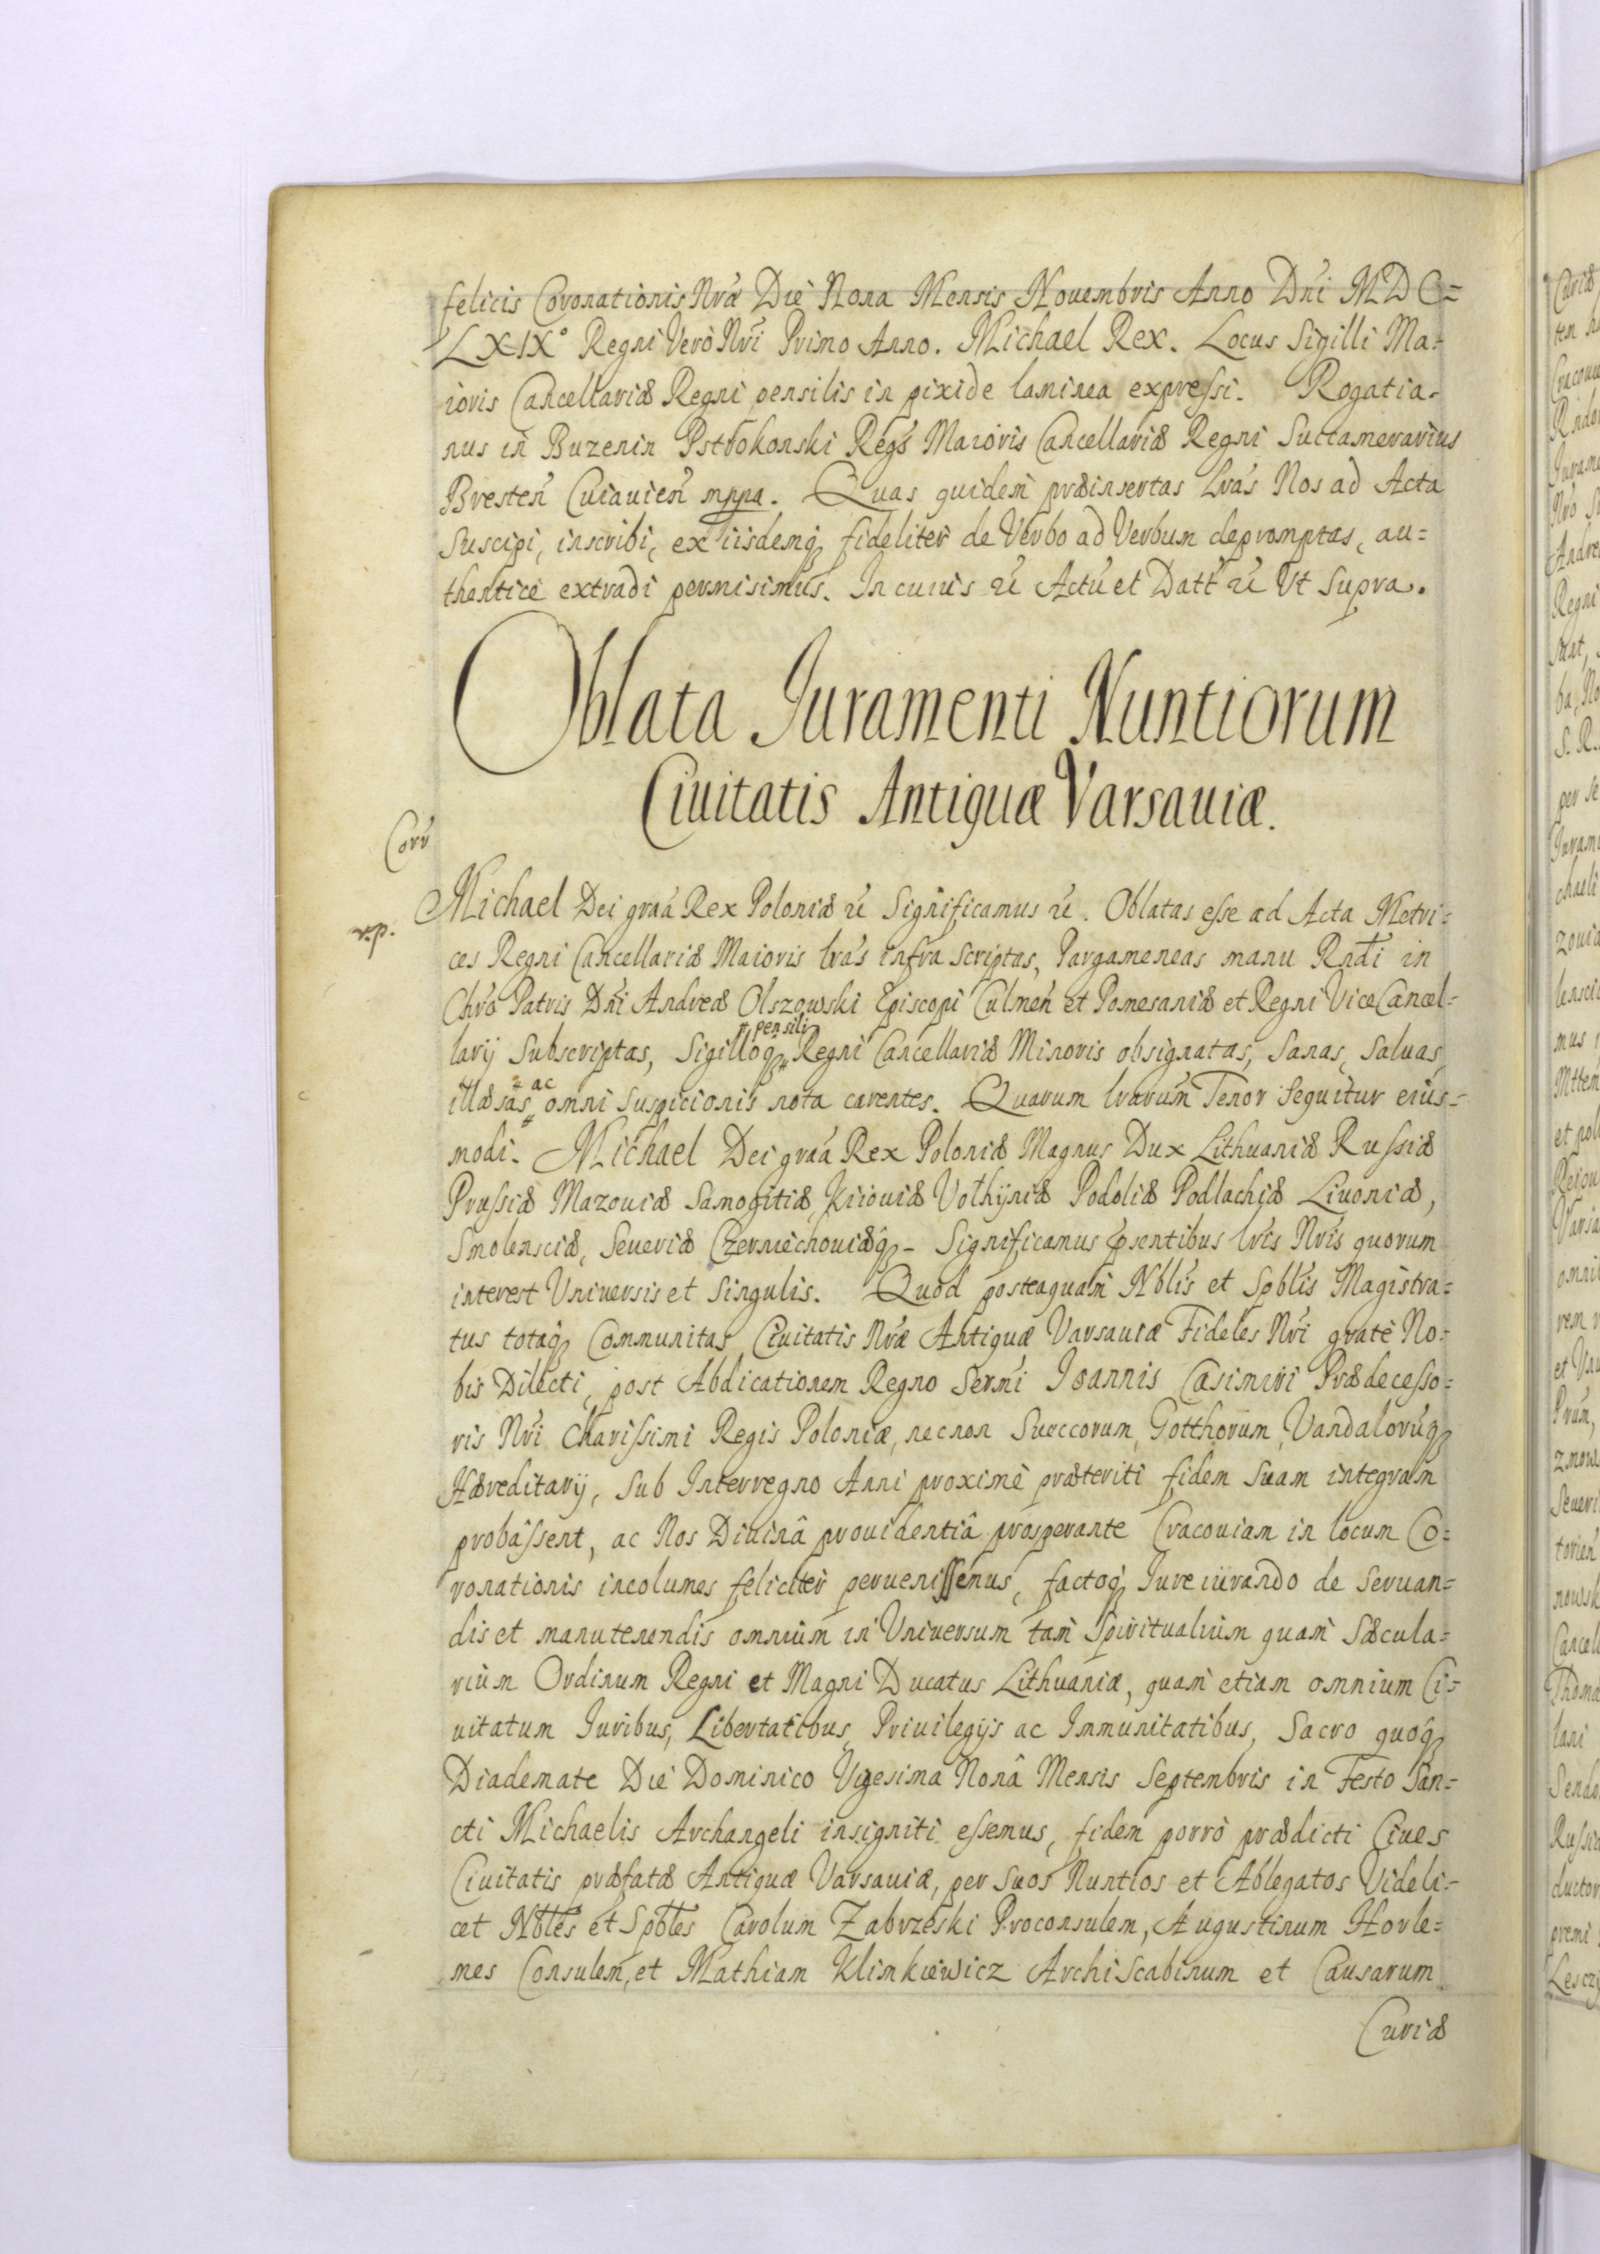 felicis Coronationis Nræ Die Nona Mensis Nouembris Anno Dni MDC=
LXIX° Regni Verò Nri Primo Anno. Michael Rex. Locus Sigilli Ma=
ioris Cancellariæ Regni pensilis in pixide laminea expressi. Rogatia=
nus in Buzenin Pstrokonski Regs Maioris Cancellariæ Regni Succamerarius
Bresten Cuiauien mppa. Quas quidem præinsertas lras Nos ad Acta
Suscipi, inscribi, ex iisdemq fideliter de Verbo ad Verbum depromptas, au=
thenticè extradi permisimus. In cuius rei Actu et Datt rei Vt Supra.
Oblata Juramenti Nuntiorum
Ciuitatis Antiquæ Varsauiæ.
Corr
Michael Dei graa Rex Poloniæ etc Significamus etc. Oblatas esse ad Acta Metri=
r.p.
ces Regni Cancellariæ Maioris lras infra scriptas, Pargameneas manu Rndi in
Chro Patris Dni Andreæ Olszowski Episcopi Culmen et Pomesaniæ et Regni ViceCancel=
pensili
larij Subscriptas, Sigilloq Regni Cancellariæ Minoris obsignatas, Sanas, Saluas
ac
illæsas omni Suspicionis nota carentes. Quarum lrarum Tenor Sequitur eius=
modi. Michael Dei graa Rex Poloniæ Magnus Dux Lithuaniæ Russiæ
Prussiæ Mazouiæ Samogitiæ, Kiiouiæ Volhijniæ Podoliæ Podlachiæ Liuoniæ,
Smolensciæ, Seueriæ Czerniechouiæq - Significamus psentibus lris Nris quorum
interest Vniuersis et Singulis. Quod posteaquam Nbles et Spbles Magistra=
tus totaq Communitas Ciuitatis Nræ Antiquæ Varsauiæ Fideles Nri gratè No=
bis Dilecti, post Abdicationem Regno Sermi Ioannis Casimiri Prædecesso=
ris Nri Charissimi Regis Poloniæ, necnon Sueccorum, Gotthorum, Vandaloruq
Hæreditarij, Sub Interregno Anni proximè præteriti fidem Suam integram
probassent, ac Nos Diuinâ prouidentiâ prosperante Cracouiam in locum Co=
ronationis incolumes feliciter peruenissemus, factoq Jure iurando de Seruan=
dis et manutenendis omnium in Vniuersum tam Spiritualium quam Sæcula=
rium Ordinum Regni et Magni Ducatus Lithuaniæ, quam etiam omnium Ci=
uitatum Juribus, Libertatibus, Priuilegijs ac Immunitatibus, Sacro quoq
Diademate Die Dominico Vigesima Nonâ Mensis Septembris in Festo San=
cti Michaelis Archangeli insigniti essemus, fidem porrò prædicti Ciues
Ciuitatis præfatæ Antiquæ Varsauiæ, per Suos Nuntios et Ablegatos Videli=
cet Nbles et Spbles Carolum Zabrzeski Proconsulem, Augustinum Horle=
mes Consulem, et Mathiam Klimkiewicz ArchiScabinum et Causarum
Curiæ